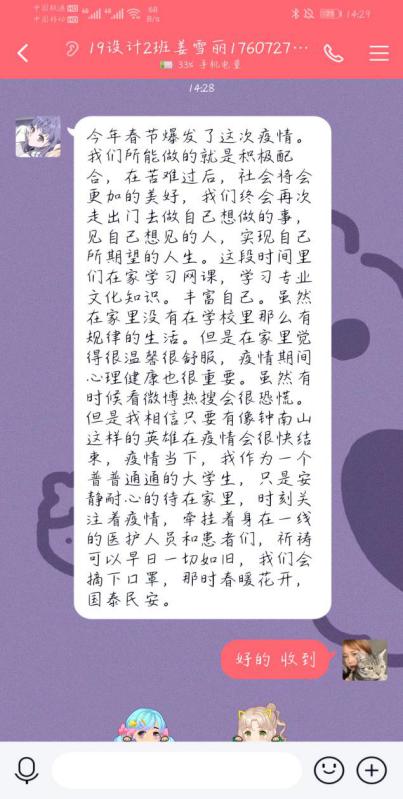 中国联通 HD 4G 4G 68 B/s 14:29
中国移动 HD
19设计2班姜雪丽1760727…
33% 手机电量
14:28
今年春节爆发了这次疫情。
我们所能做的就是积极配
合，在苦难过后，社会将会
更加的美好，我们终会再次
走出门去做自己想做的事，
见自己想见的人，实现自己
所期望的人生。这段时间里
们在家学习网课，学习专业
文化知识。丰富自己。虽然
在家里没有在学校里那么有
规律的生活。但是在家里觉
得很温馨很舒服，疫情期间
心理健康也很重要。虽然有
时候看微博热搜会很恐慌。
但是我相信只要有像钟南山
这样的英雄在疫情会很快结
束，疫情当下，我作为一个
普普通通的大学生，只是安
静耐心的待在家里，时刻关
注着疫情，牵挂着身在一线
的医护人员和患者们，祈祷
可以早日一切如旧，我们会
摘下口罩，那时春暖花开，
国泰民安。
好的 收到